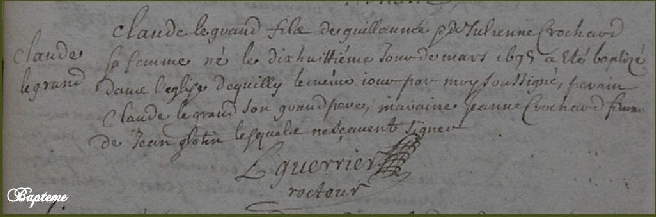 claude le grand filz de guillaume & de Julienne Crochard
Claude
le grand
sa femme né le dixhuittiéme Jour de mars 1695 a eté baptizé
dans l'eglise daquilly le méme jour par moy soussigné, parain
Claude le grand son grand pere, maraine Jeanne Crochard femme
de Jean lesquelle ne sçavent signer
L guerrier
recteur
Bapteme